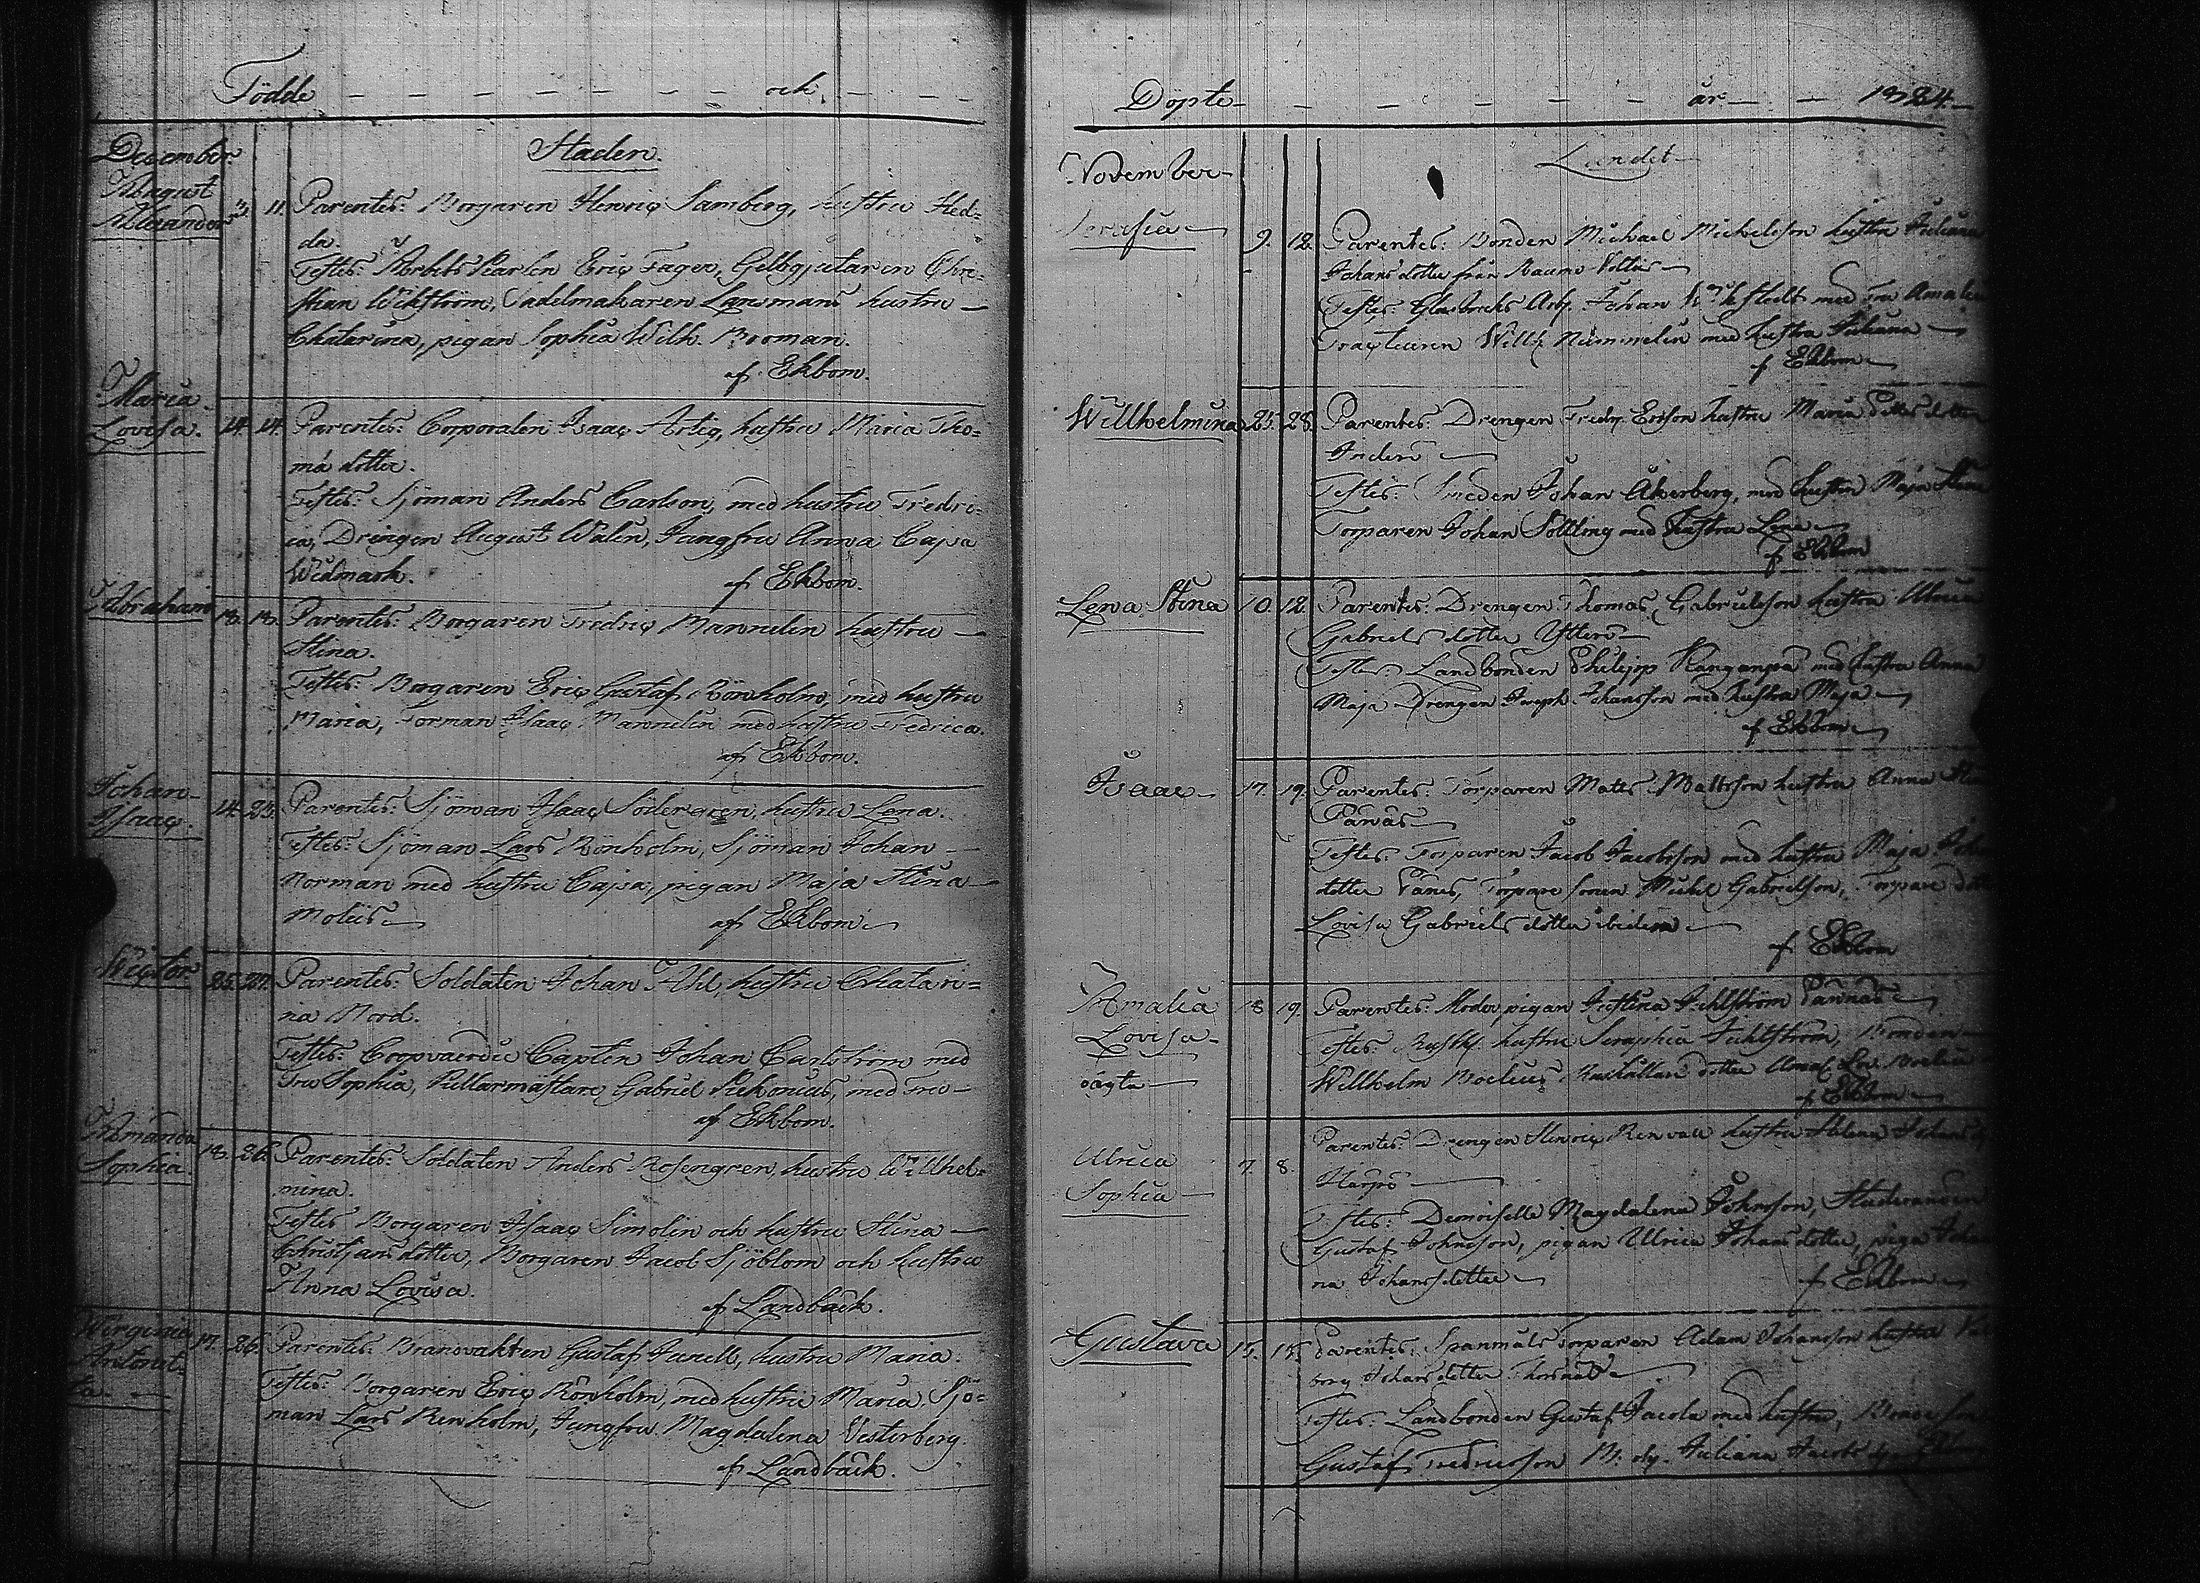 Födde och
Staden.
December
August
Alexander 3. 11. Parentes: Borgaren Henric Samberg, hustru Hed=
da.
Testes: Arbets Karlen Eric Fager, Gelbgjutaren Chri=
stian Wickström, Sadelmakaren Lansmans hustru
Chatarina, pigan Sophia Wilh. Booman.
af Ekbom.
Maria
Lovisa. 14. 14. Parentes: Corporalen Isaac Artig, hustru Maria Tho=
mæ dotter.
Testes: Sjöman Anders Carlson, med hustru Fredri=
ca, Drengen August Walin, Jungfru Anna Cajsa
Widmark. af Ekbom.
Abraham 13. 13. Parentes: Borgaren Fredric Mannelin hustru
Stina.
Testes: Borgaren Eric Gustaf Rönholm, med hustru
Maria, Forman Isaac Mannelin med hustru Fredrica.
af Ekbom.
Johan
Isaac. 14. 23. Parentes: Sjöman Isaac Södergren, hustru Lena.
Testes: Sjöman Lars Rönholm, Sjöman Johan
Norman med hustru Cajsa, pigan Maja Stina
Moliis af Ekbom
Wictor 25. 27. Parentes: Soldaten Johan Ahl, hustru Chatari=
na Nord.
Testes: Coopvaerdie Capten Johan Carlström med
Fru Sophia, Kullarmästare Gabriel Rekonius, med Fru
af Ekbom.
Amanda
Sophia. 13. 26. Parentes: Soldaten Anders Rosengren, hustru Willhel=
mina.
Testes Borgaren Isaac Simolin och hustru Stina
Christjans dotter, Borgaren Jacob Sjöblom och hustru
Anna Lovisa.
af Landbäck.
Wirginia
Antonet=
ta 17. 26. Parentes: Brandvakten Gustaf Junell, hustru Maria.
Testes: Borgaren Eric Rönholm, med hustru Maria Sjö=
man Lars Renholm, Jungfru Magdalena Vesterberg.
af Landbäck.
Döpte år 1834
Landet
November
Serafia 9. 12. Parentes: Bonden Michael Michelsson hustru Juliana
Johans dotter från Raumo
Testes: Johan med Fru Amalia
Willh. Nummelin med hustru Juliana
af Ekbom
Willhelmina 25. 28. Parentes: Drengen Fredr. Ersson hustru Maria dotter
Inderö
Testes: Smeden Johan Åkerberg, med hustru Maja Stina
Torparen Johan Söttling med hustru Lena
af Ekbom
Lena Stina 10. 12. Parentes: Drengen Thomas Gabrielsson hustru Ulrica
Gabriels dotter Ytterö
Testes Landbonden Philipp Kanganpä med hustru Anna
Maja Drengen Joseph Johansson med hustru Maja
af Ekbom
Isaac 17. 19. Parentes: Torparen Matts Mattsson hustru Anna
Pänäs
Testes: Torparen Jacob Jacobsson med hustru Maja
dotter Pänes, Torpare sonen Michel Gabrielson, Torpare
Lovisa Gabriels dotter ibidem
af Ekbom
Amalia
Lovisa
oägta 18 19. Parentes: Moder, pigan Justina Fehlström Pännäs
Testes: hustru Seraphia Fehlström, Bonden
Willhelm Boelius, Rusthållare dotter Amal. Lov. Boelius
af Ekbom
Ulrica
Sophia 7. 8. Parentes: Drengen Henric Renvall hustru Helena
Harjo
Testes: Demoiselle Magdalena Johnsson, Studeranden
Gustaf Johnsson, pigan Ulrica Johans dotter, piga Joha
na Johans dotter af Ekbom
Gustava 15. 18. Parentes: Spanmåls Torparen Adam Johansson hustru Val
borg Johans dotter
Testes: Landbonden Gustaf Jacola med hustru, Bonde son
Gustaf Fredricsson B. dr. Juliana Jacobs dr.